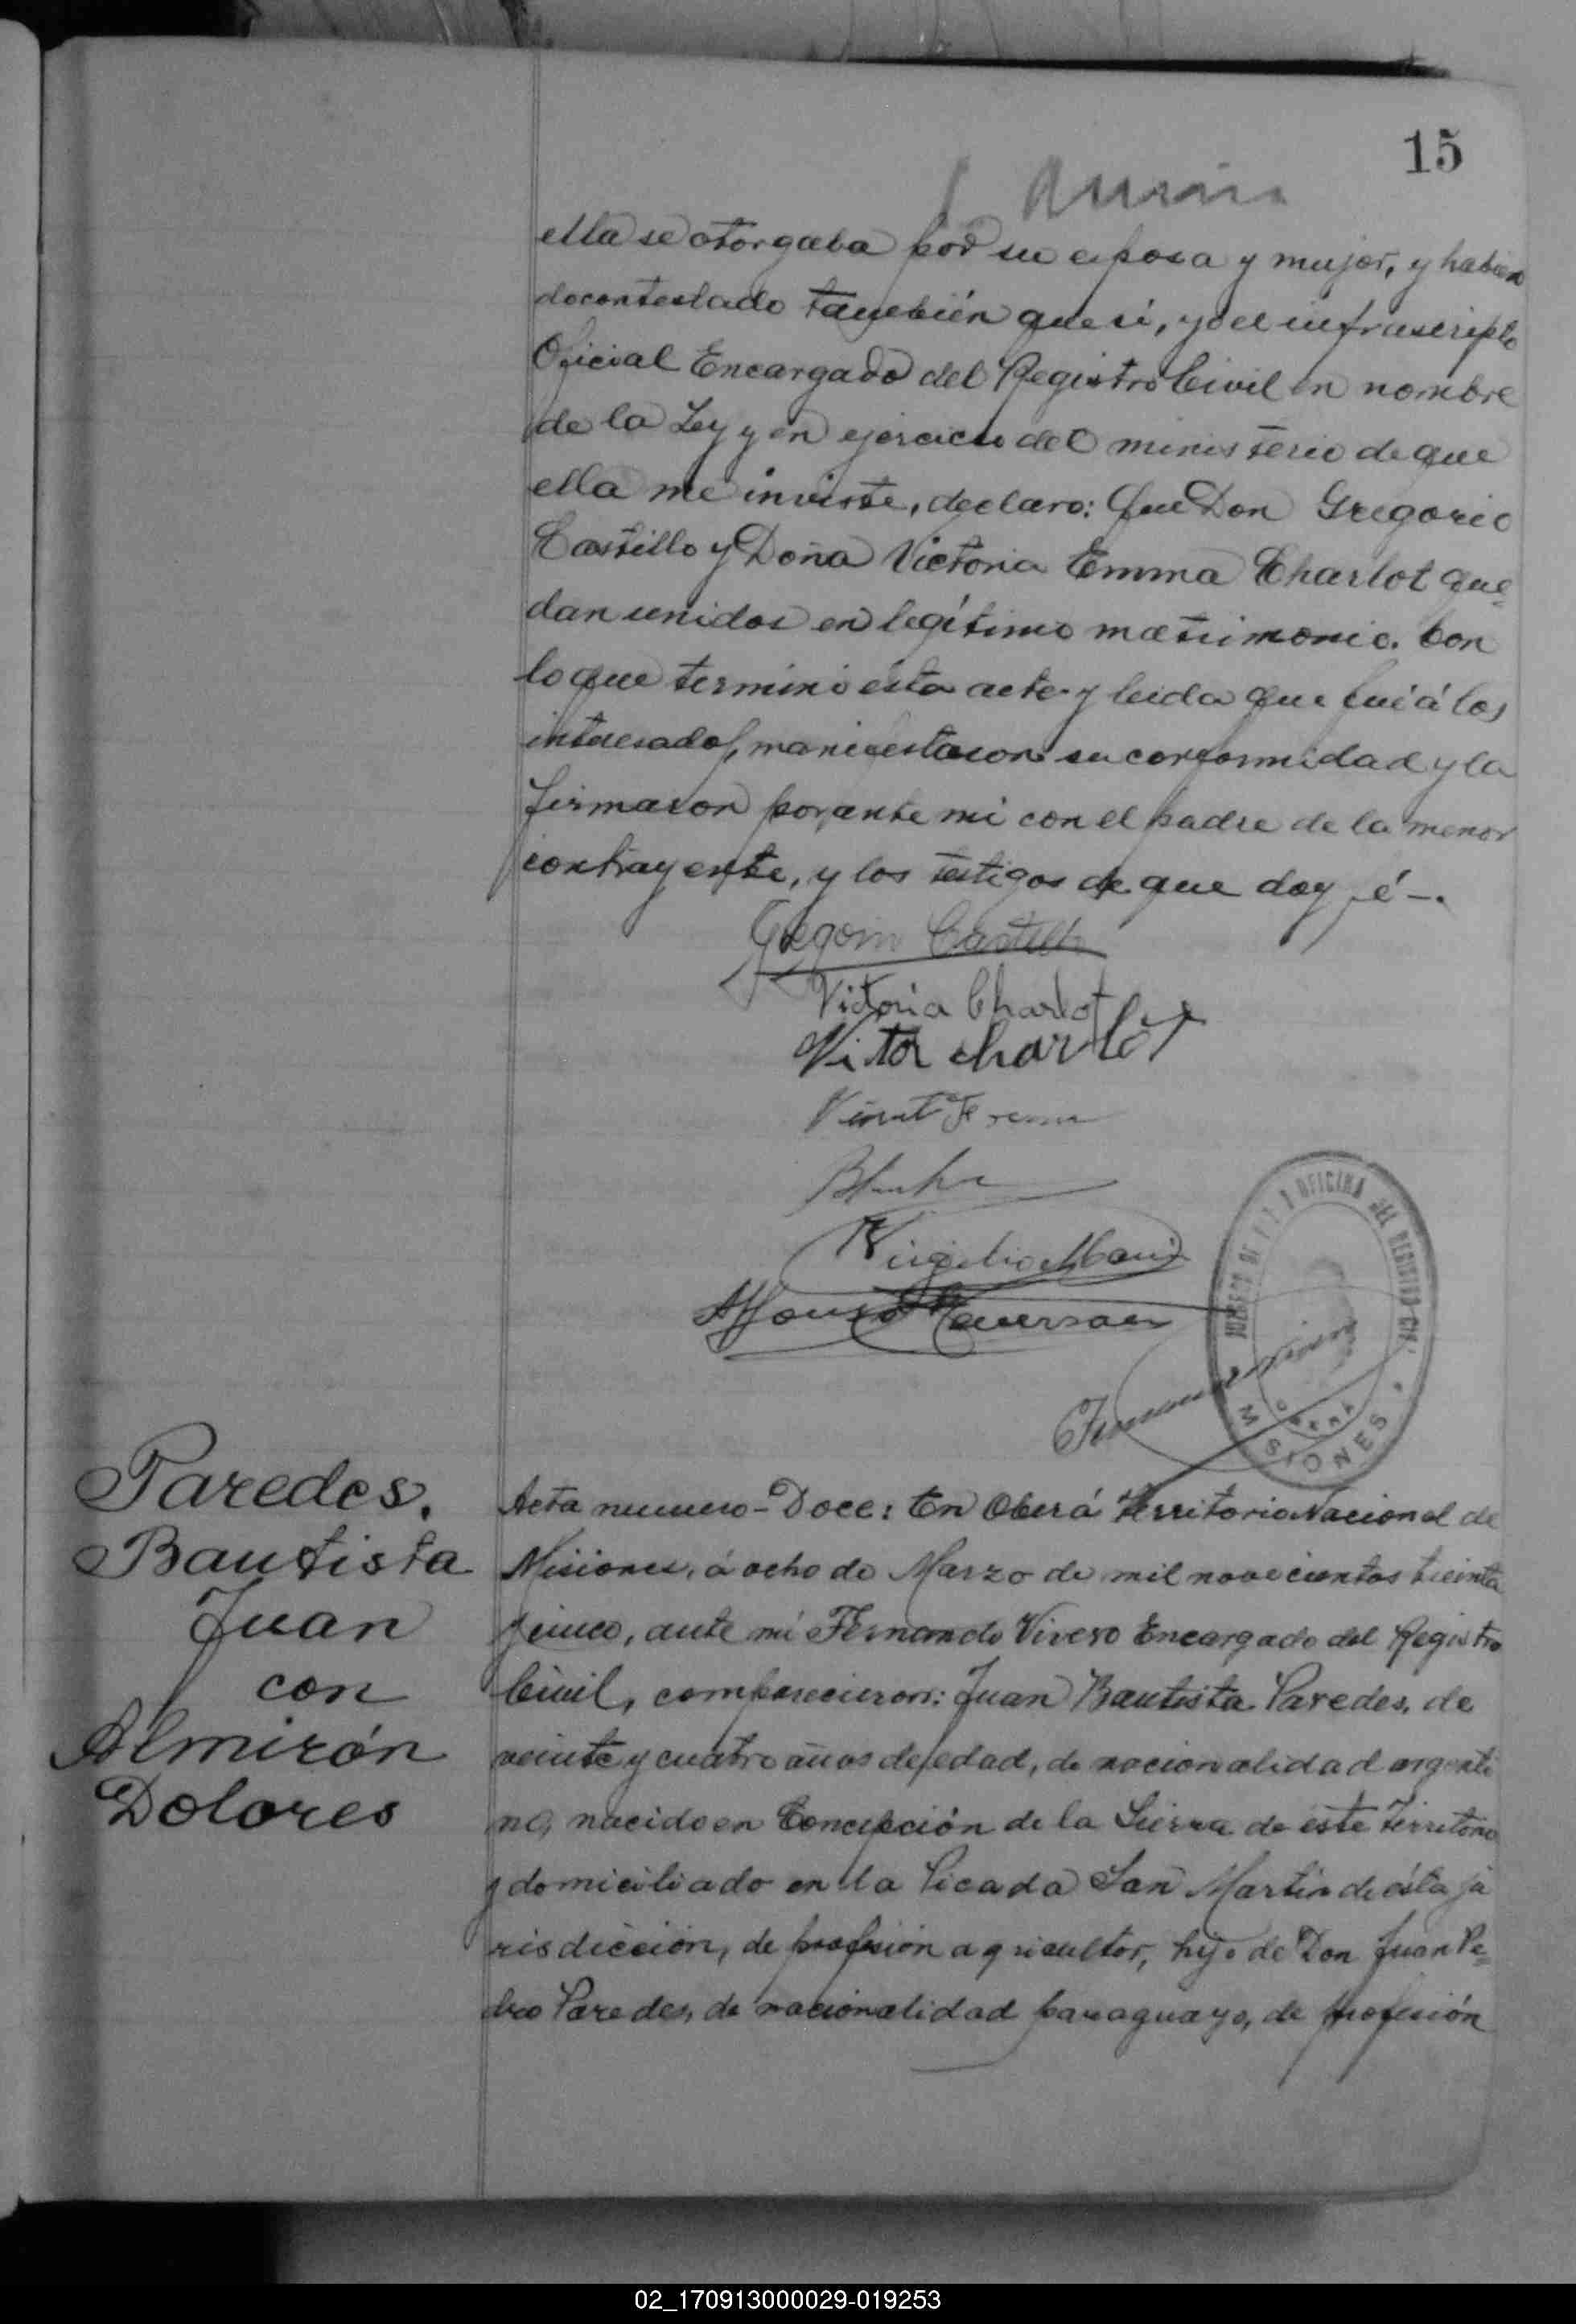 15
ella se otorgaba por su esposa y mujer, y habien
do contestado también que sí, yo el infrascripto
Oficial Encargado del Registro Civil en nombre
de la Ley y en ejercicio del ministerio de que
ella me inviste, declaro: Que Don Gregorio
Castillo y Doña Victoria Emma Charlot que-
dan unidos en legítimo matrimonio. Con
lo que terminó esta acta y leida que fué á los
interesados, manifestaron su conformidad y la
firmaron por ante mi con el padre de la menor
contrayente, y los testigos de que doy fé -.
Gregorio Castillo
Victoria Charlot
Vitor charlot
JUZGADO DE PAZ Y OFICINA DEL REGISTRO CIVIL
OBERÁ
MISIONES
Paredes.
Bautista
Juan
con
Almirón
Dolores
Acta numero - Doce: En Oberá Territorio Nacional de
Misiones, á ocho de Marzo de mil novecientos treinta
y cinco, ante mí Fernando Vivero Encargado del Registro
Civil, comparecieron: Juan Bautista Paredes, de
veinte y cuatro años de edad, de nacionalidad argenti
no, nacido en Concepción de la Sierra de este Territorio
y domiciliado en la Picada San Martín de ésta ju
risdicción, de profesión agricultor, hijo de Don Juan Pe-
dro Paredes, de nacionalidad paraguayo, de profesión
02_170913000029-019253